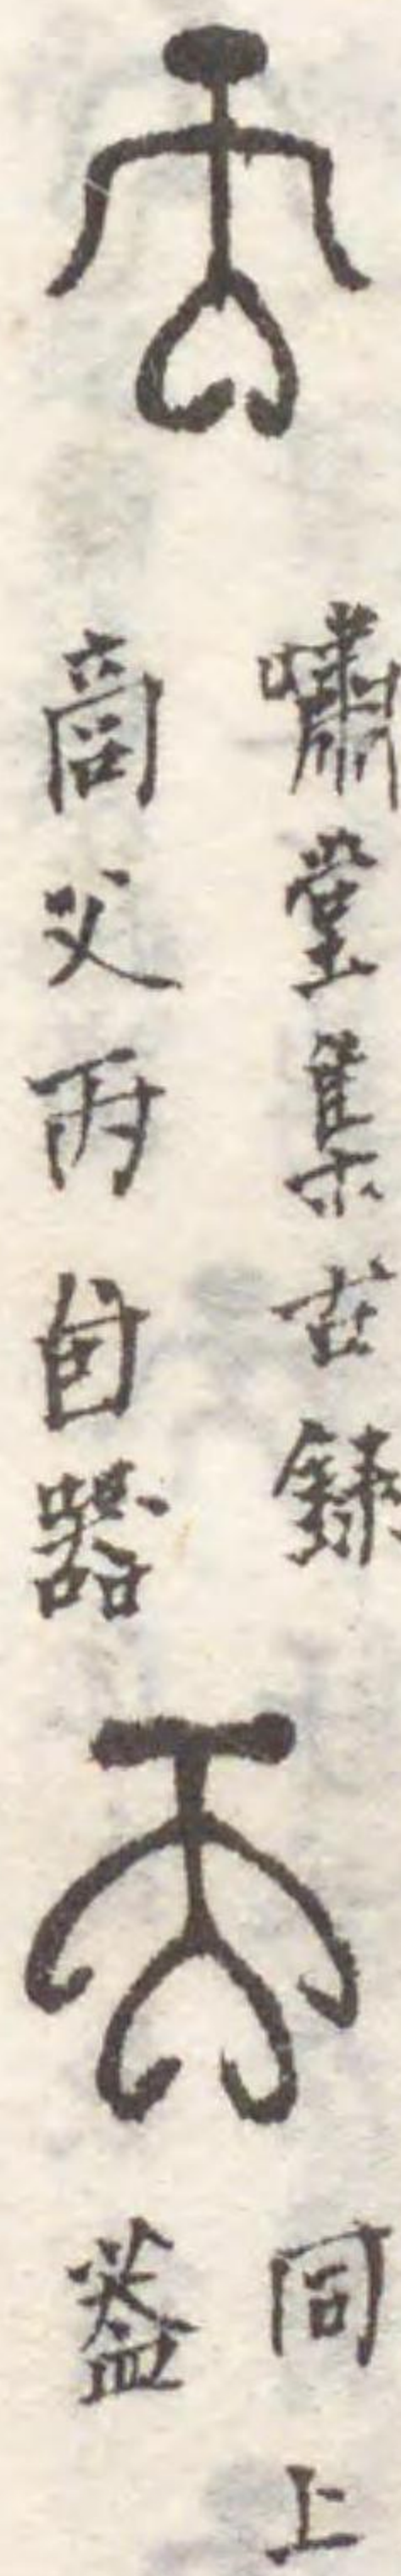 嘯堂集古錄
商父丙卣器
同上
蓋